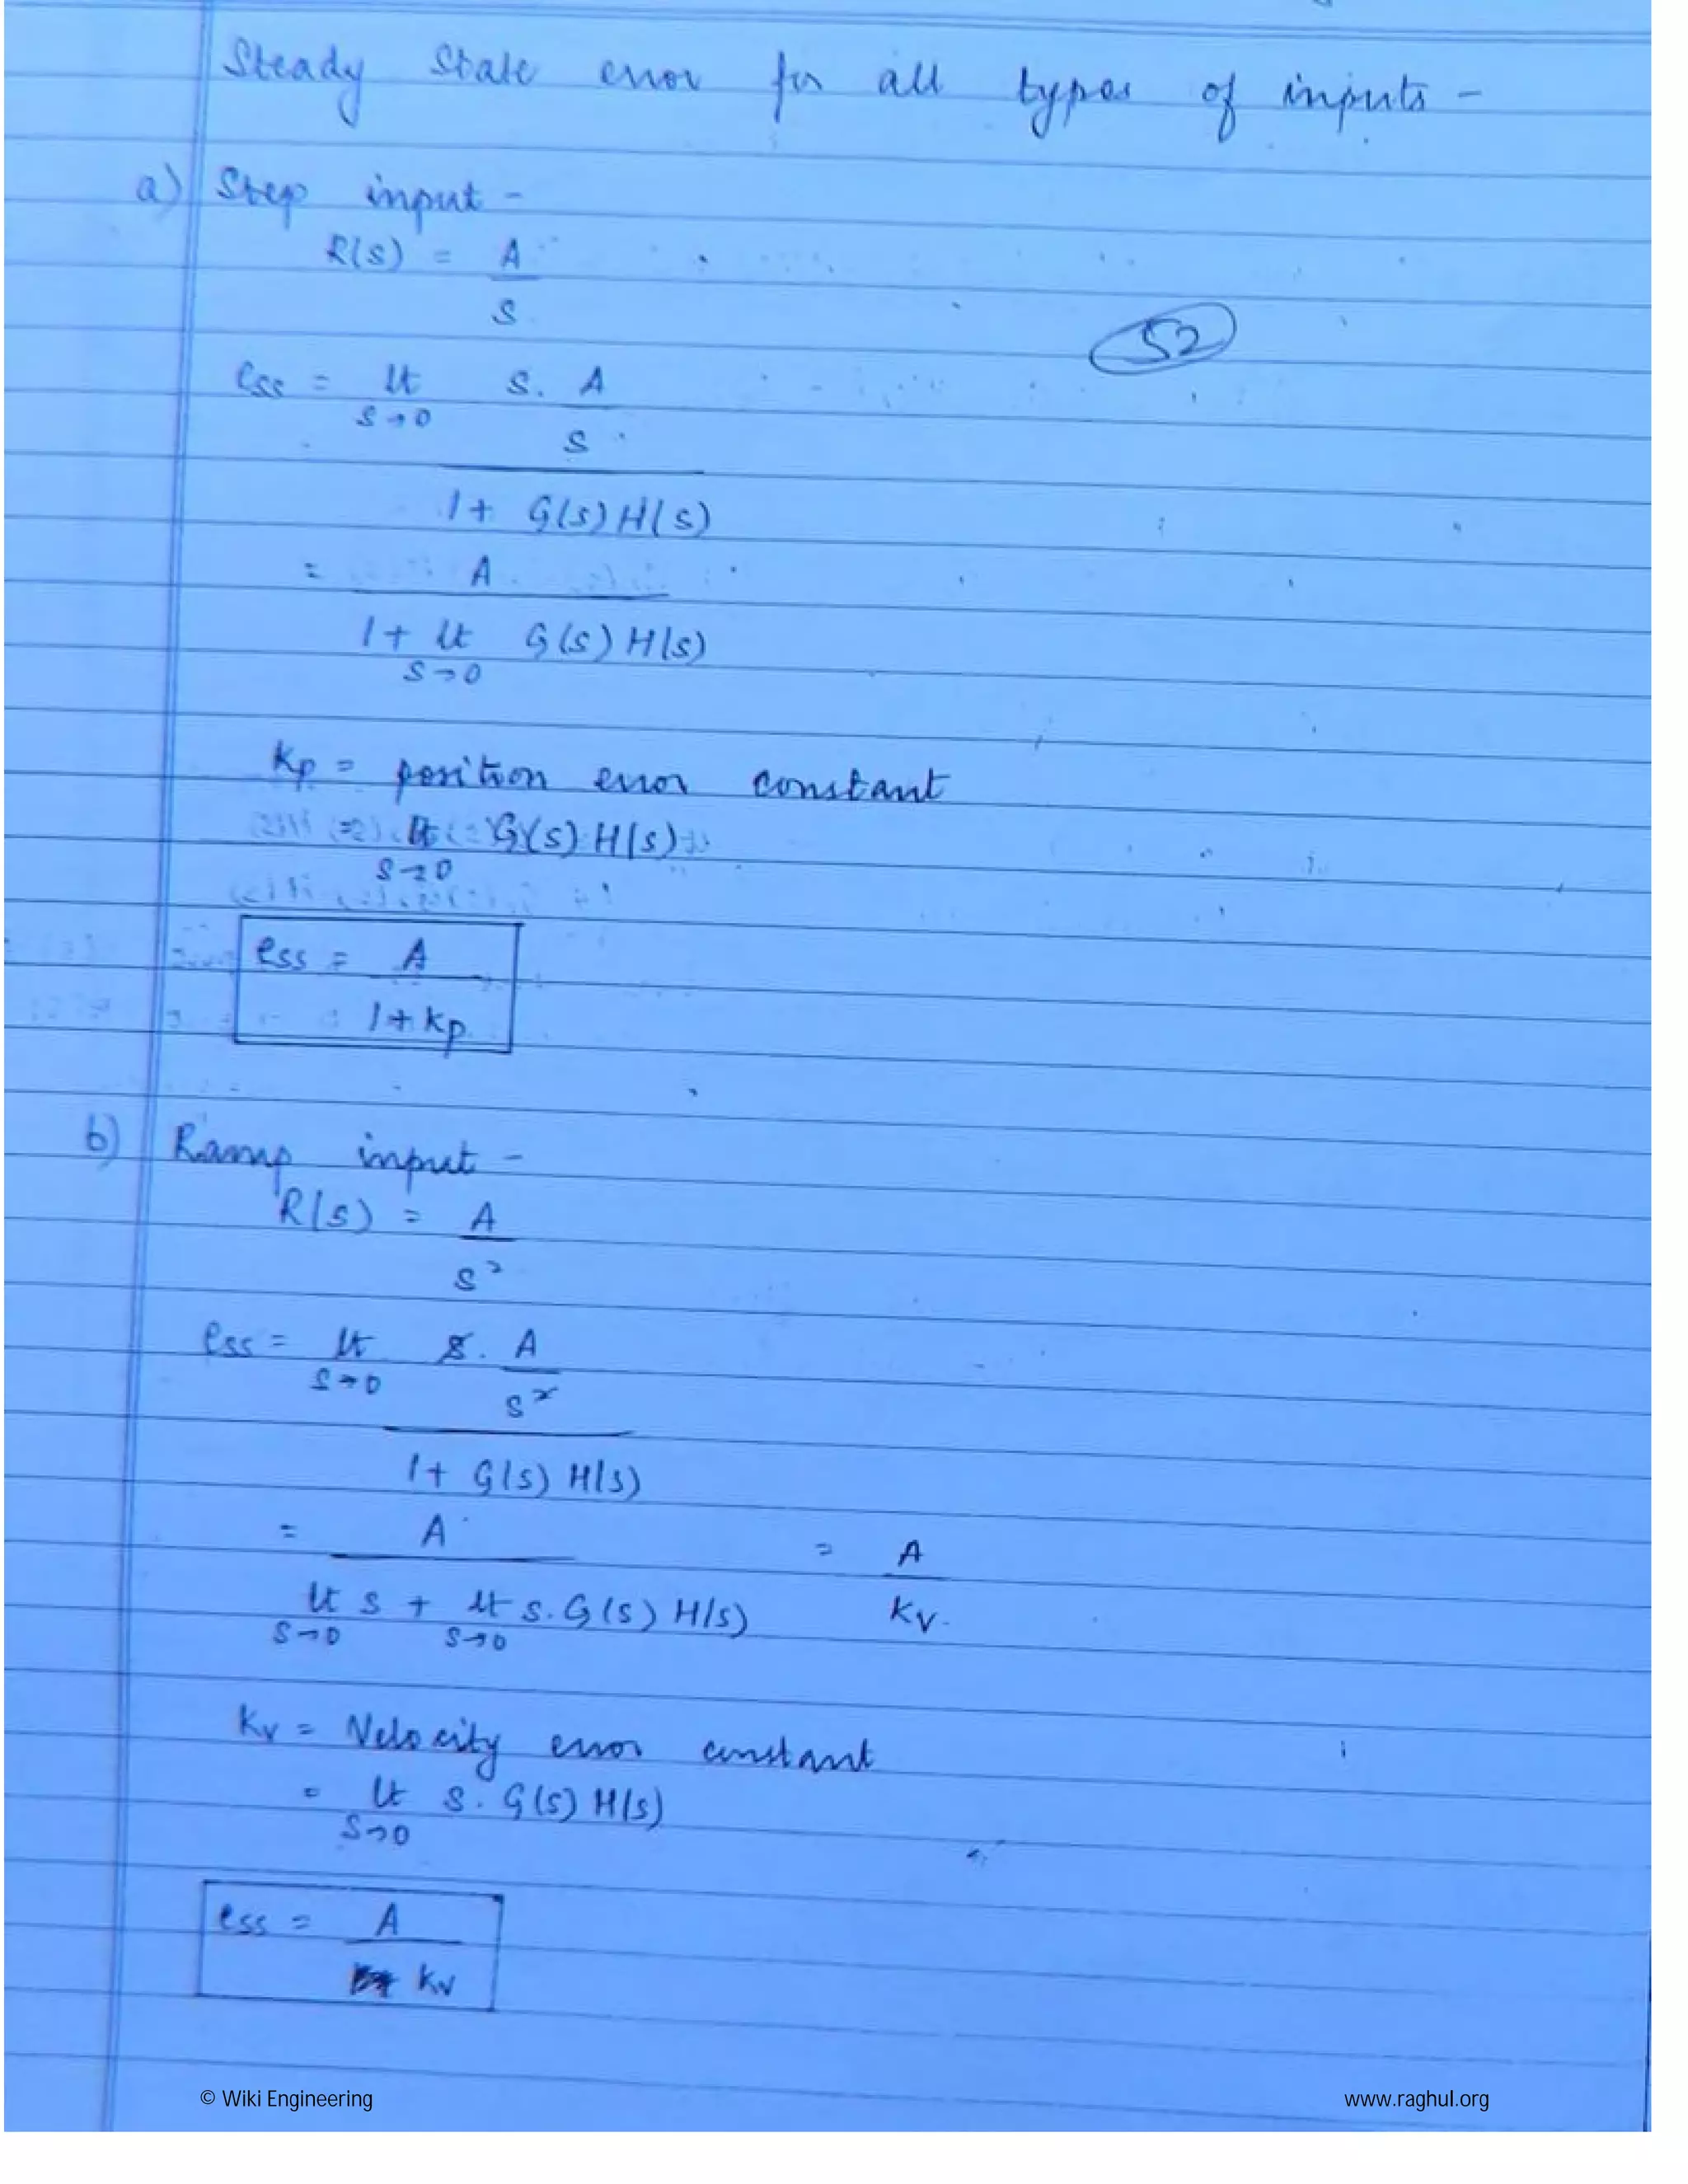 Steady state error for all types of inputs -
a) Step input -
R(s) = A
s
52
ess = lt s. A
s→0
s
1 + G(s) H(s)
= A
1 + lt G(s) H(s)
s→0
Kp = position error constant
lt G(s) H(s)
s→0
ess = A
1 + Kp
b) Ramp input -
R(s) = A
s²
ess = lt s. A
s→0
s²
1 + G(s) H(s)
= A = A
lt s + lt s. G(s) H(s) Kv.
s→0 s→0
Kv = Velocity error constant
= lt s. G(s) H(s)
s→0
ess = A
Kv
© Wiki Engineering www.raghul.org